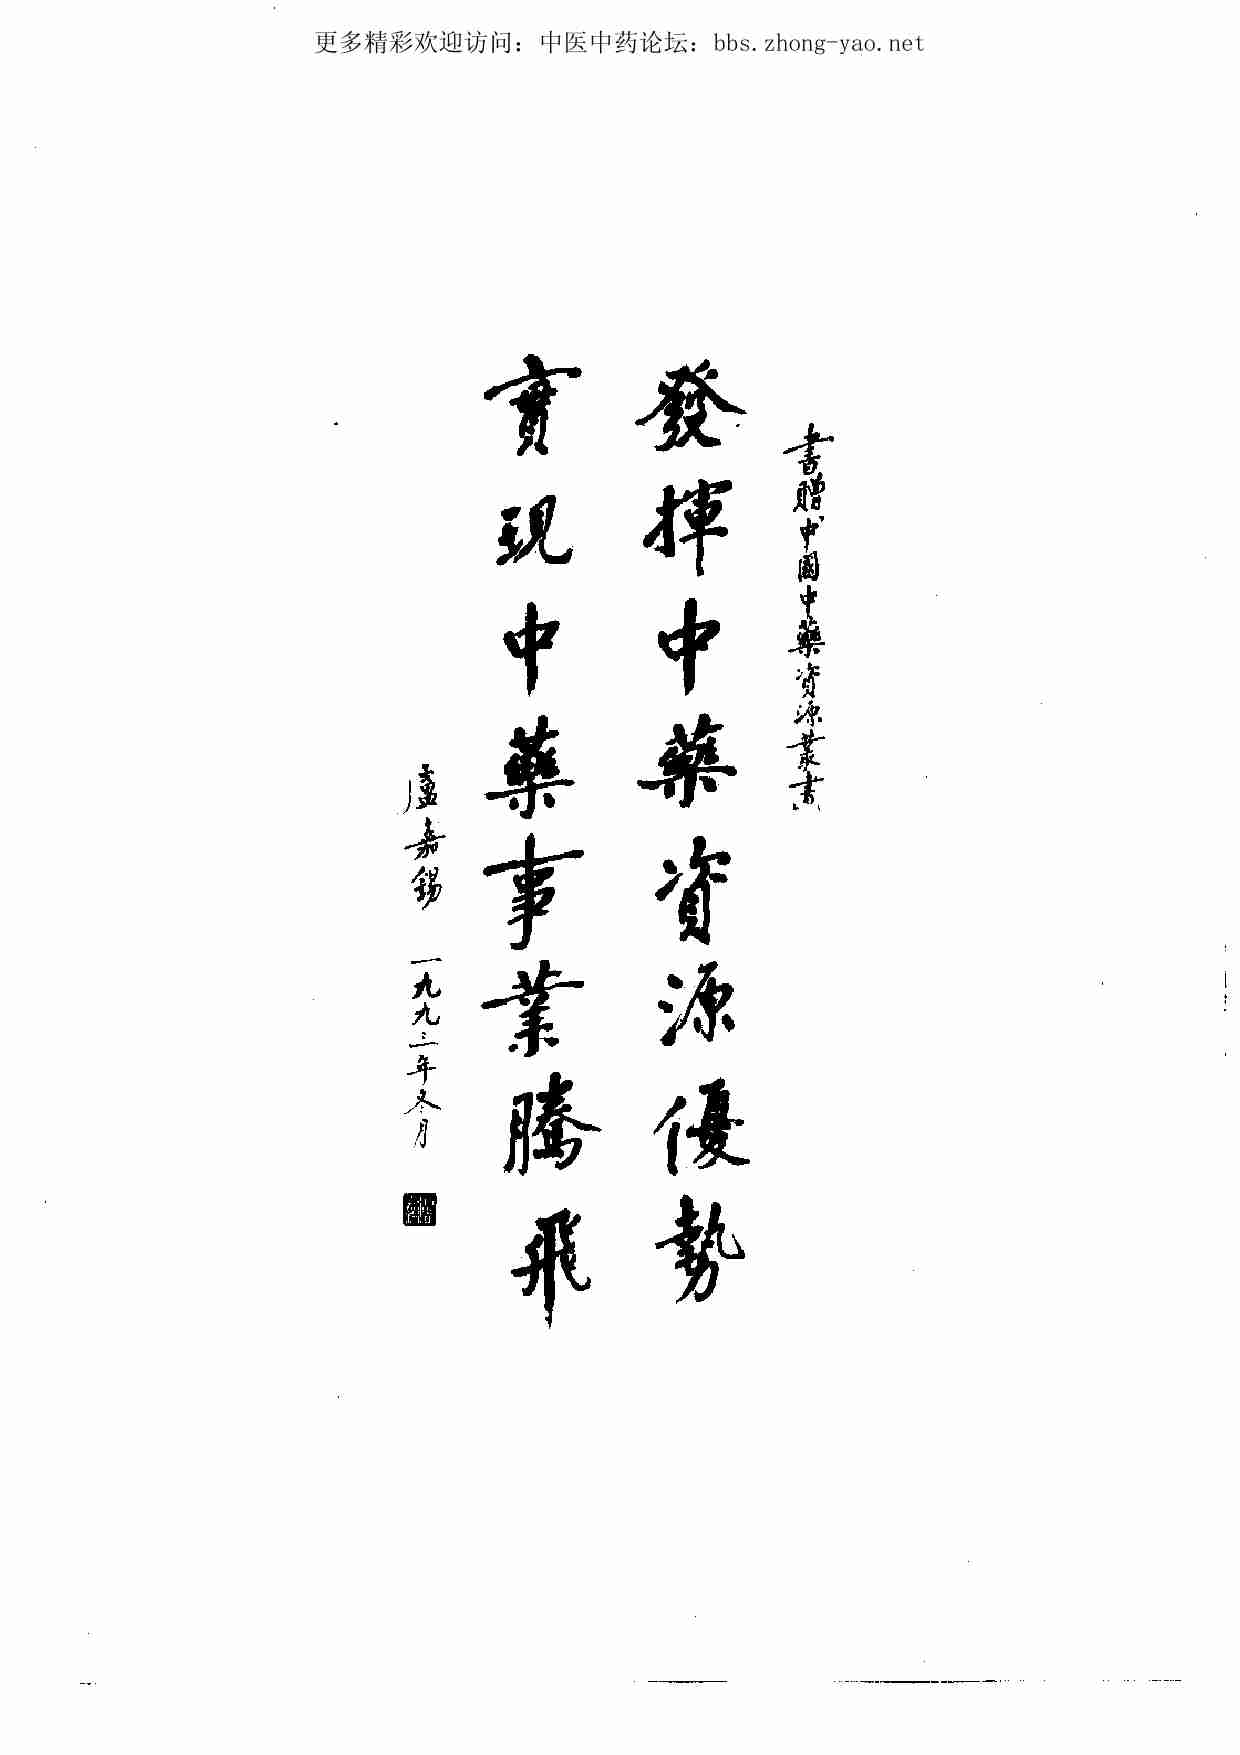 更多精彩欢迎访问：中医中药论坛：bbs.zhong-yao.net
書贈中国中藥資源叢書
發揮中藥資源優勢
實現中藥事業騰飛
盧嘉錫 一九九三年冬月